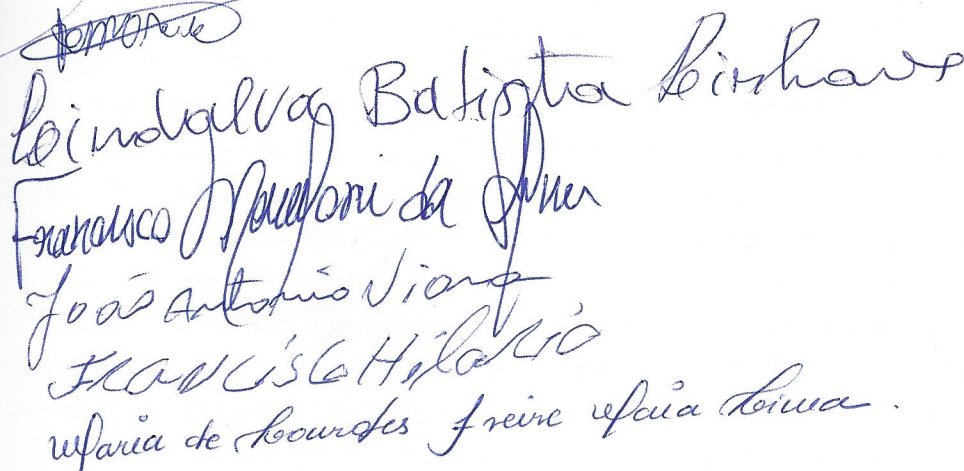 Leindalva Batista Linhares
Francisco da Silva
João Antonio Viana
FRANCISCO HilaRiO
Maria de Lourdes Freire Maia Lima.